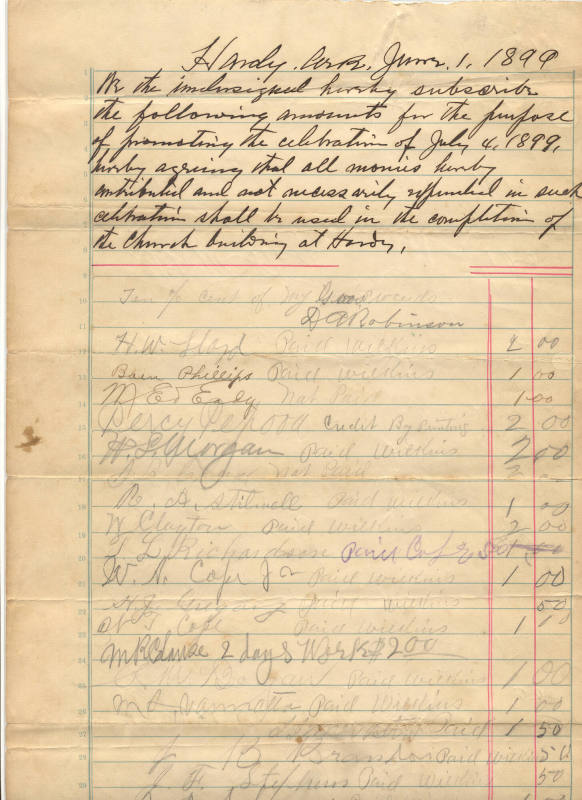 Hardy, Ark, June 1, 1899
We the undersigned hereby subscribe
the following amounts for the purpose
of promoting the celebration of July 4, 1899,
hereby agreeing that all monies hereby
contributed and not necessarily expended in such
celebration shall be used in the completion of
the Church building at Hardy.
Ten % cent of my
D A Robinson
H. W. Lloyd Paid Wilkins 2 00
Baen Phillips Paid Wilkins 1 00
M. Ed Eady Not Paid 1.00
Percy Credit By Printing 2 00
H. L. Morgan Paid Wilkins 2 00
Not Paid 2
R. A. Stilwell Paid Wilkins 1 00
W Clayton Paid Wilkins 2 00
L Richardson Paid
W. A. Cope Jr Paid Wilkins 1 00
Gregory Paid Wilkins 50
Cope Paid Wilkins 1
M R Clause 2 days Work $2.00
Paid Wilkins 1 00
Vannatta Paid Wilkins 1 00
Paid 1 50
B Paid Wilkins 50
J. F. Stephens Paid Wilkins 50